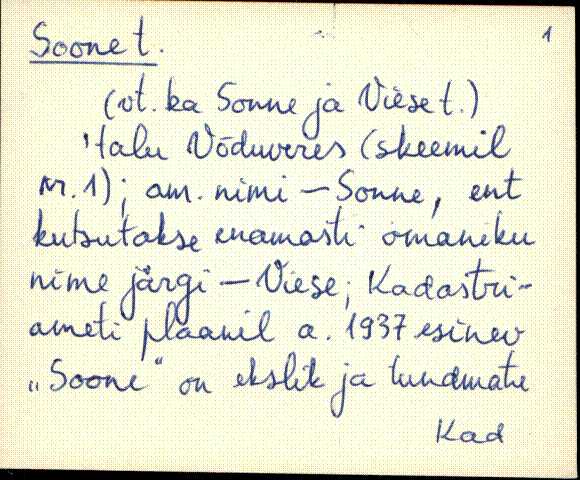 Soone t. 1
(vt. ka Sonne ja Viese t.)
'talu Võduveres (skeemil
nr. 1); am. nimi – Sonne, ent
kutsutakse enamasti omaniku
nime järgi – Viese; Kadastri-
ameti plaanil a. 1937 esinev
„Soone" on ekslik ja tundmatu
Kad